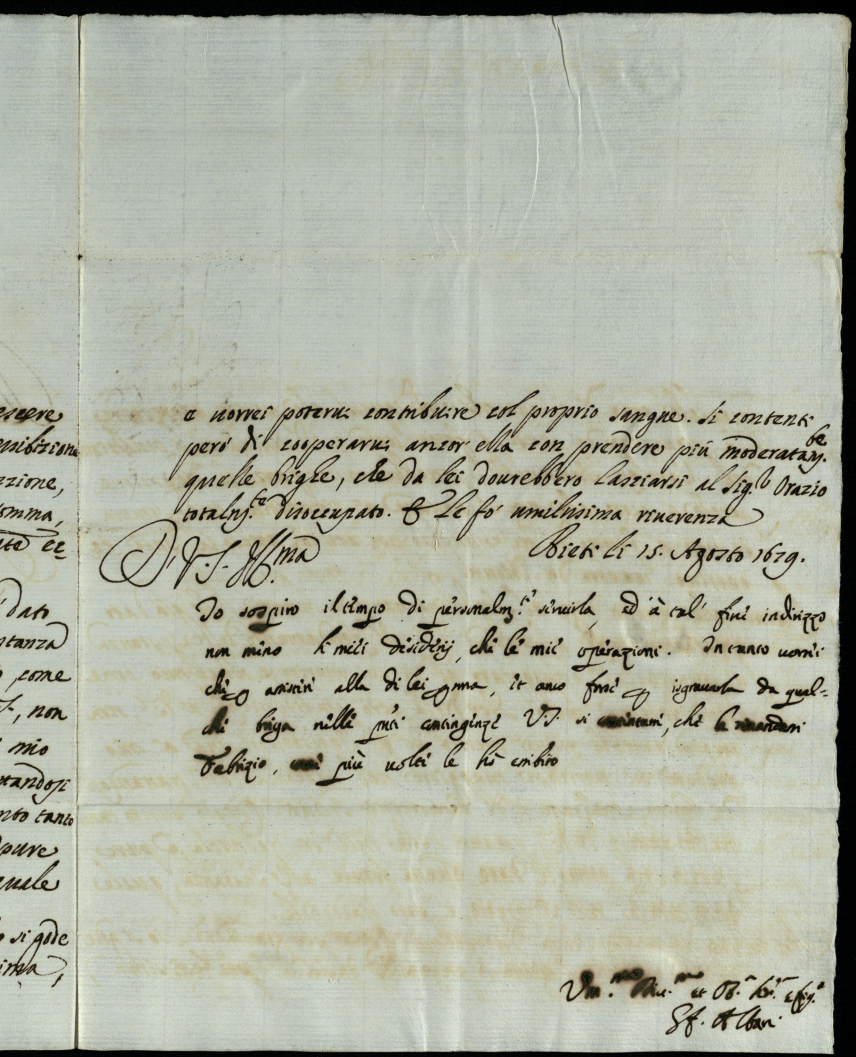 escere
esibizione
zzione,
omma,
dato
stanza
, come
non
mio
tandosi
nto tanto
pure
quale
si gode
ima,
e vorrei potervi contribuire col proprio sangue. Si contenti
però di cooperarvi ancor ella con prendere più moderatam.te
quelle brighe, che da lei dourebbero lasciarsi al Sig.r Orazio
totalm.te disoccupato. E le fò umilissima riverenza
Di V. S. Ill.ma
Rieti li 15. Agosto 1679.
Io sospiro il tempo di personalm.te servirla, ed à tal fine indirizzo
non meno li miei desiderij, che le mie operazioni. In tanto vorrei
che assistere alla di lei, et anco forse isgravarla da qual=
che briga nelle p̃nti contingenze V. S. si che le
Fabrizio, più volte le hò esibito
et
Albani